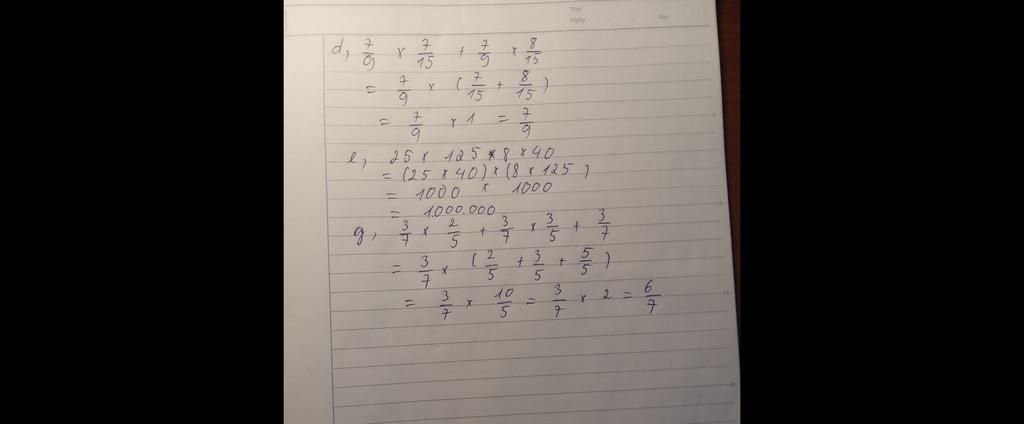 Thứ
Ngày No.
d, 7/9 × 7/15 + 7/9 × 8/15
= 7/9 × ( 7/15 + 8/15 )
= 7/9 × 1 = 7/9
e, 25 × 125 × 8 × 40
= (25 × 40) × (8 × 125 )
= 1000 × 1000
= 1.000.000
g, 3/7 × 2/5 + 3/7 × 3/5 + 3/7
= 3/7 × ( 2/5 + 3/5 + 5/5 )
= 3/7 × 10/5 = 3/7 × 2 = 6/7